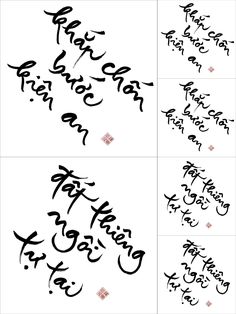 khắp chốn
bước
kiện an
đất thiêng
ngồi
tự tại
khắp chốn
bước
kiện an
khắp chốn
bước
kiện an
đất thiêng
ngồi
tự tại
đất thiêng
ngồi
tự tại